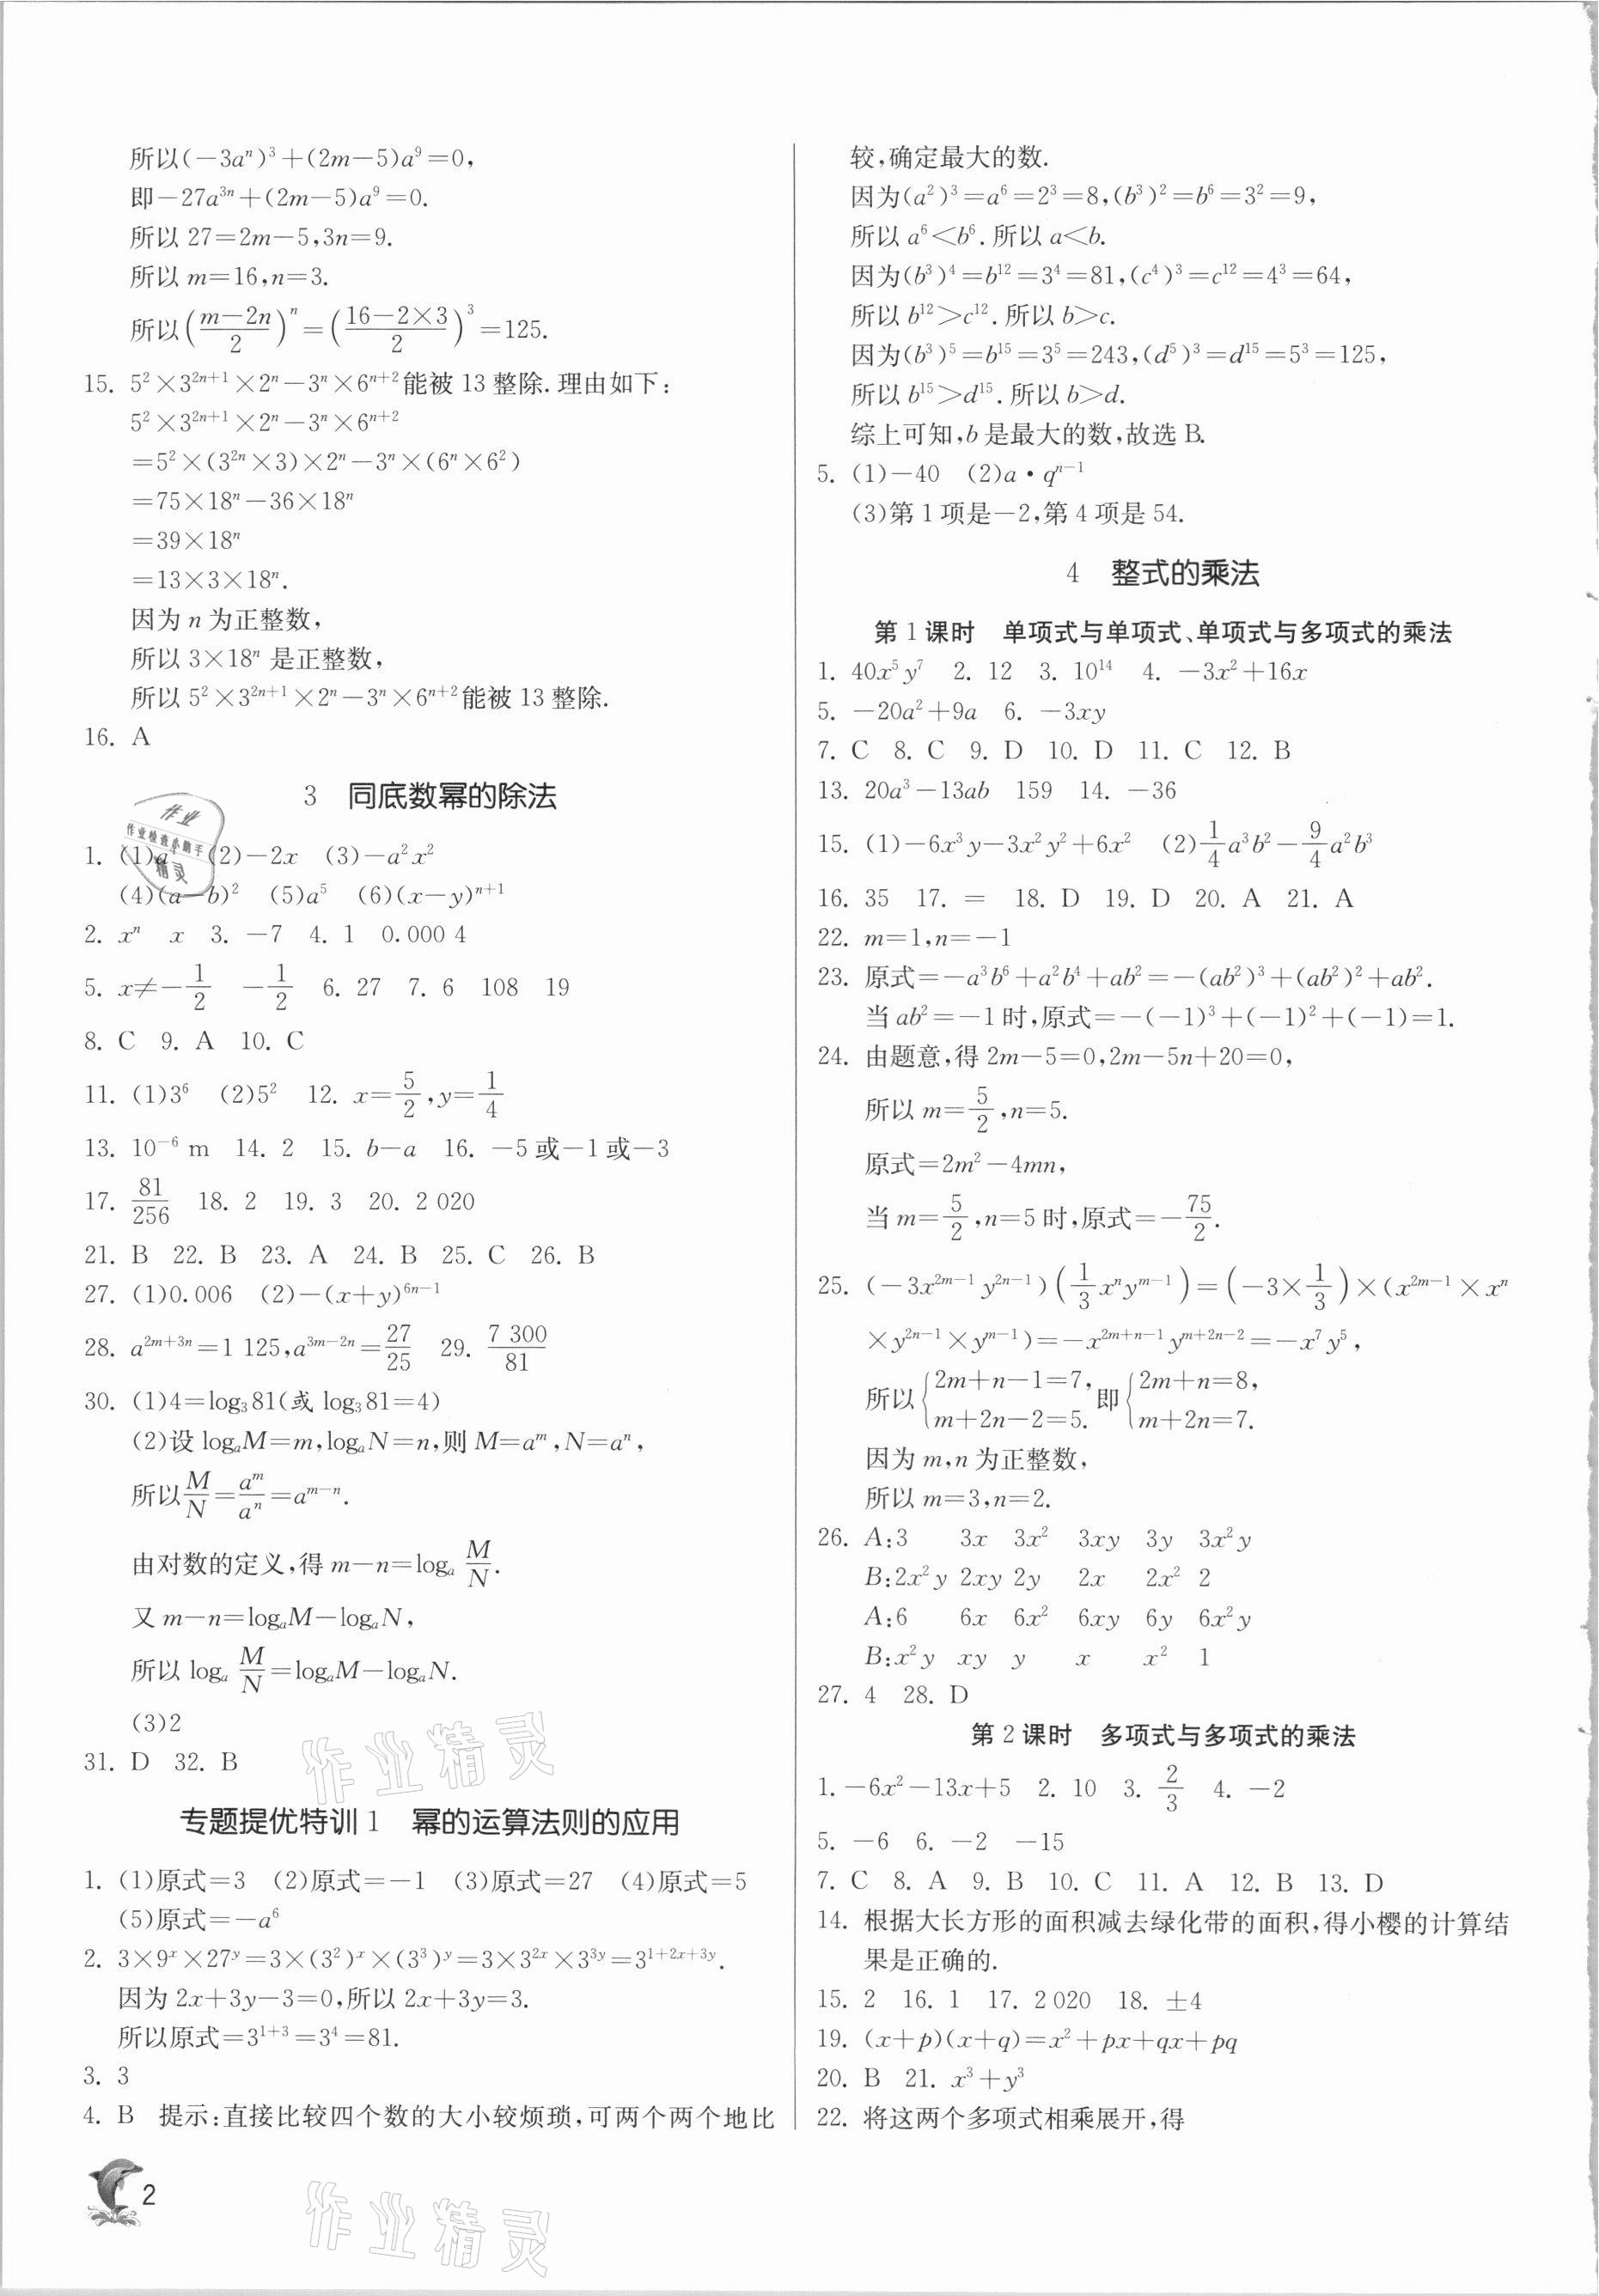 所以(−3aⁿ)³+(2m−5)a⁹=0,
即−27a³ⁿ+(2m−5)a⁹=0.
所以 27=2m−5,3n=9.
所以 m=16,n=3.
所以((m−2n)/2)ⁿ=((16−2×3)/2)³=125.
15. 5²×3²ⁿ⁺¹×2ⁿ−3ⁿ×6ⁿ⁺²能被 13 整除.理由如下:
5²×3²ⁿ⁺¹×2ⁿ−3ⁿ×6ⁿ⁺²
=5²×(3²ⁿ×3)×2ⁿ−3ⁿ×(6ⁿ×6²)
=75×18ⁿ−36×18ⁿ
=39×18ⁿ
=13×3×18ⁿ.
因为 n 为正整数,
所以 3×18ⁿ 是正整数,
所以 5²×3²ⁿ⁺¹×2ⁿ−3ⁿ×6ⁿ⁺²能被 13 整除.
16. A
3 同底数幂的除法
作业
作业检查小助手
精灵
1. (1)a (2)−2x (3)−a²x²
(4)(a−b)² (5)a⁵ (6)(x−y)ⁿ⁺¹
2. xⁿ x 3. −7 4. 1 0.000 4
5. x≠−1/2 −1/2 6. 27 7. 6 108 19
8. C 9. A 10. C
11. (1)3⁶ (2)5² 12. x=5/2,y=1/4
13. 10⁻⁶ m 14. 2 15. b−a 16. −5或−1或−3
17. 81/256 18. 2 19. 3 20. 2 020
21. B 22. B 23. A 24. B 25. C 26. B
27. (1)0.006 (2)−(x+y)⁶ⁿ⁻¹
28. a²ᵐ⁺³ⁿ=1 125,a³ᵐ⁻²ⁿ=27/25 29. 7 300/81
30. (1)4=log₃81(或 log₃81=4)
(2)设 logₐM=m,logₐN=n,则 M=aᵐ,N=aⁿ,
所以M/N=aᵐ/aⁿ=aᵐ⁻ⁿ.
由对数的定义,得 m−n=logₐ M/N.
又 m−n=logₐM−logₐN,
所以 logₐ M/N=logₐM−logₐN.
(3)2
31. D 32. B
作业精灵
专题提优特训 1 幂的运算法则的应用
1. (1)原式=3 (2)原式=−1 (3)原式=27 (4)原式=5
(5)原式=−a⁶
2. 3×9ˣ×27ʸ=3×(3²)ˣ×(3³)ʸ=3×3²ˣ×3³ʸ=3¹⁺²ˣ⁺³ʸ.
因为 2x+3y−3=0,所以 2x+3y=3.
所以原式=3¹⁺³=3⁴=81.
3. 3
4. B 提示:直接比较四个数的大小较烦琐,可两个两个地比
2
作业精灵
较,确定最大的数.
因为(a²)³=a⁶=2³=8,(b³)²=b⁶=3²=9,
所以 a⁶<b⁶.所以 a<b.
因为(b³)⁴=b¹²=3⁴=81,(c⁴)³=c¹²=4³=64,
所以 b¹²>c¹².所以 b>c.
因为(b³)⁵=b¹⁵=3⁵=243,(d⁵)³=d¹⁵=5³=125,
所以 b¹⁵>d¹⁵.所以 b>d.
综上可知,b 是最大的数,故选 B.
5. (1)−40 (2)a·qⁿ⁻¹
(3)第 1 项是−2,第 4 项是 54.
4 整式的乘法
第 1 课时 单项式与单项式、单项式与多项式的乘法
1. 40x⁵y⁷ 2. 12 3. 10¹⁴ 4. −3x²+16x
5. −20a²+9a 6. −3xy
7. C 8. C 9. D 10. D 11. C 12. B
13. 20a³−13ab 159 14. −36
15. (1)−6x³y−3x²y²+6x² (2)1/4a³b²−9/4a²b³
16. 35 17. = 18. D 19. D 20. A 21. A
22. m=1,n=−1
23. 原式=−a³b⁶+a²b⁴+ab²=−(ab²)³+(ab²)²+ab².
当 ab²=−1 时,原式=−(−1)³+(−1)²+(−1)=1.
24. 由题意,得 2m−5=0,2m−5n+20=0,
所以 m=5/2,n=5.
原式=2m²−4mn,
当 m=5/2,n=5 时,原式=−75/2.
25. (−3x²ᵐ⁻¹y²ⁿ⁻¹)(1/3xⁿyᵐ⁻¹)=(−3×1/3)×(x²ᵐ⁻¹×xⁿ
×y²ⁿ⁻¹×yᵐ⁻¹)=−x²ᵐ⁺ⁿ⁻¹yᵐ⁺²ⁿ⁻²=−x⁷y⁵,
所以{2m+n−1=7, m+2n−2=5. 即{2m+n=8, m+2n=7.
因为 m,n 为正整数,
所以 m=3,n=2.
26. A:3 3x 3x² 3xy 3y 3x²y
B:2x²y 2xy 2y 2x 2x² 2
A:6 6x 6x² 6xy 6y 6x²y
B:x²y xy y x x² 1
27. 4 28. D
第 2 课时 多项式与多项式的乘法
1. −6x²−13x+5 2. 10 3. 2/3 4. −2
5. −6 6. −2 −15
7. C 8. A 9. B 10. C 11. A 12. B 13. D
14. 根据大长方形的面积减去绿化带的面积,得小樱的计算结
果是正确的.
15. 2 16. 1 17. 2 020 18. ±4
19. (x+p)(x+q)=x²+px+qx+pq
20. B 21. x³+y³
22. 将这两个多项式相乘展开,得